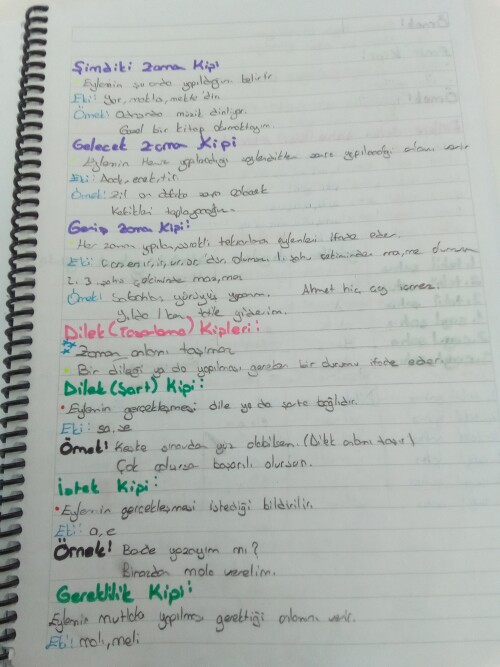 Şimdiki Zaman Kipi
Eylemin şu anda yapıldığını belirtir
Eki: Yor, makta, mekte'dir
Örnek! Odasında müzik dinliyor.
Güzel bir kitap okumaktayım.
Gelecek Zaman Kipi
Eylemin Henüz yapılmadığı söylendikten sonra yapılacağı anlamı verir
Eki: Acak, ecek, tir.
Örnek! Zil on dakika sonra çalacak
Kekikleri toplayacağım.
Geniş Zaman Kipi:
Her zaman yapılan, sürekli tekrarlanan eylemleri ifade eder.
Eki: ır, ir, ur, ür'dür. Olumsuz 1. şahıs çekiminde ma, me durumu
2. 3. şahıs çekiminde maz, mez
Örnek! Sabahları yürüyüş yaparım. Ahmet hiç çay içmez.
Yılda 1 kez tatile giderim.
Dilek (Tasarlama) Kipleri:
Zaman anlamı taşımaz
Bir dileği ya da yapılması gereken bir durumu ifade eder.
Dilek (Şart) Kipi:
• Eylemin gerçekleşmesi dile ya da şarta bağlıdır.
Eki: sa, se
Örnek! Keşke sınavdan yüz alabilsen. (Dilek anlamı taşır)
Çok çalışırsa başarılı olursun.
İstek Kipi:
• Eylemin gerçekleşmesi istediği bildirilir.
Eki: a, e
Örnek! Bade yazayım mı?
Birazdan mola verelim.
Gereklilik Kipi:
Eylemin mutlaka yapılması gerektiği anlamı verir.
Eki: malı, meli